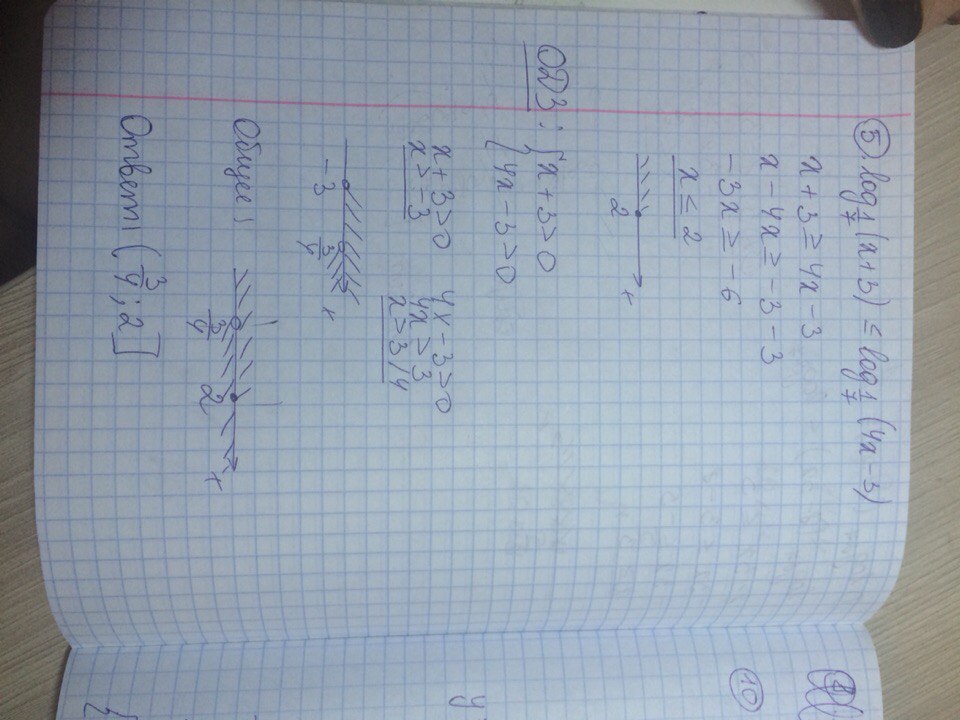 ⑤ log 1/7 (x+3) ≤ log 1/7 (4x-3)
x+3 ≥ 4x-3
x-4x ≥ -3-3
-3x ≥ -6
x ≤ 2
2 x
ОДЗ: { x+3>0
{ 4x-3>0
x+3>0 4x-3>0
x>-3 4x>3
x>3/4
-3 3/4 x
Общее:
3/4 2 x
Ответ: (3/4; 2]
10
y